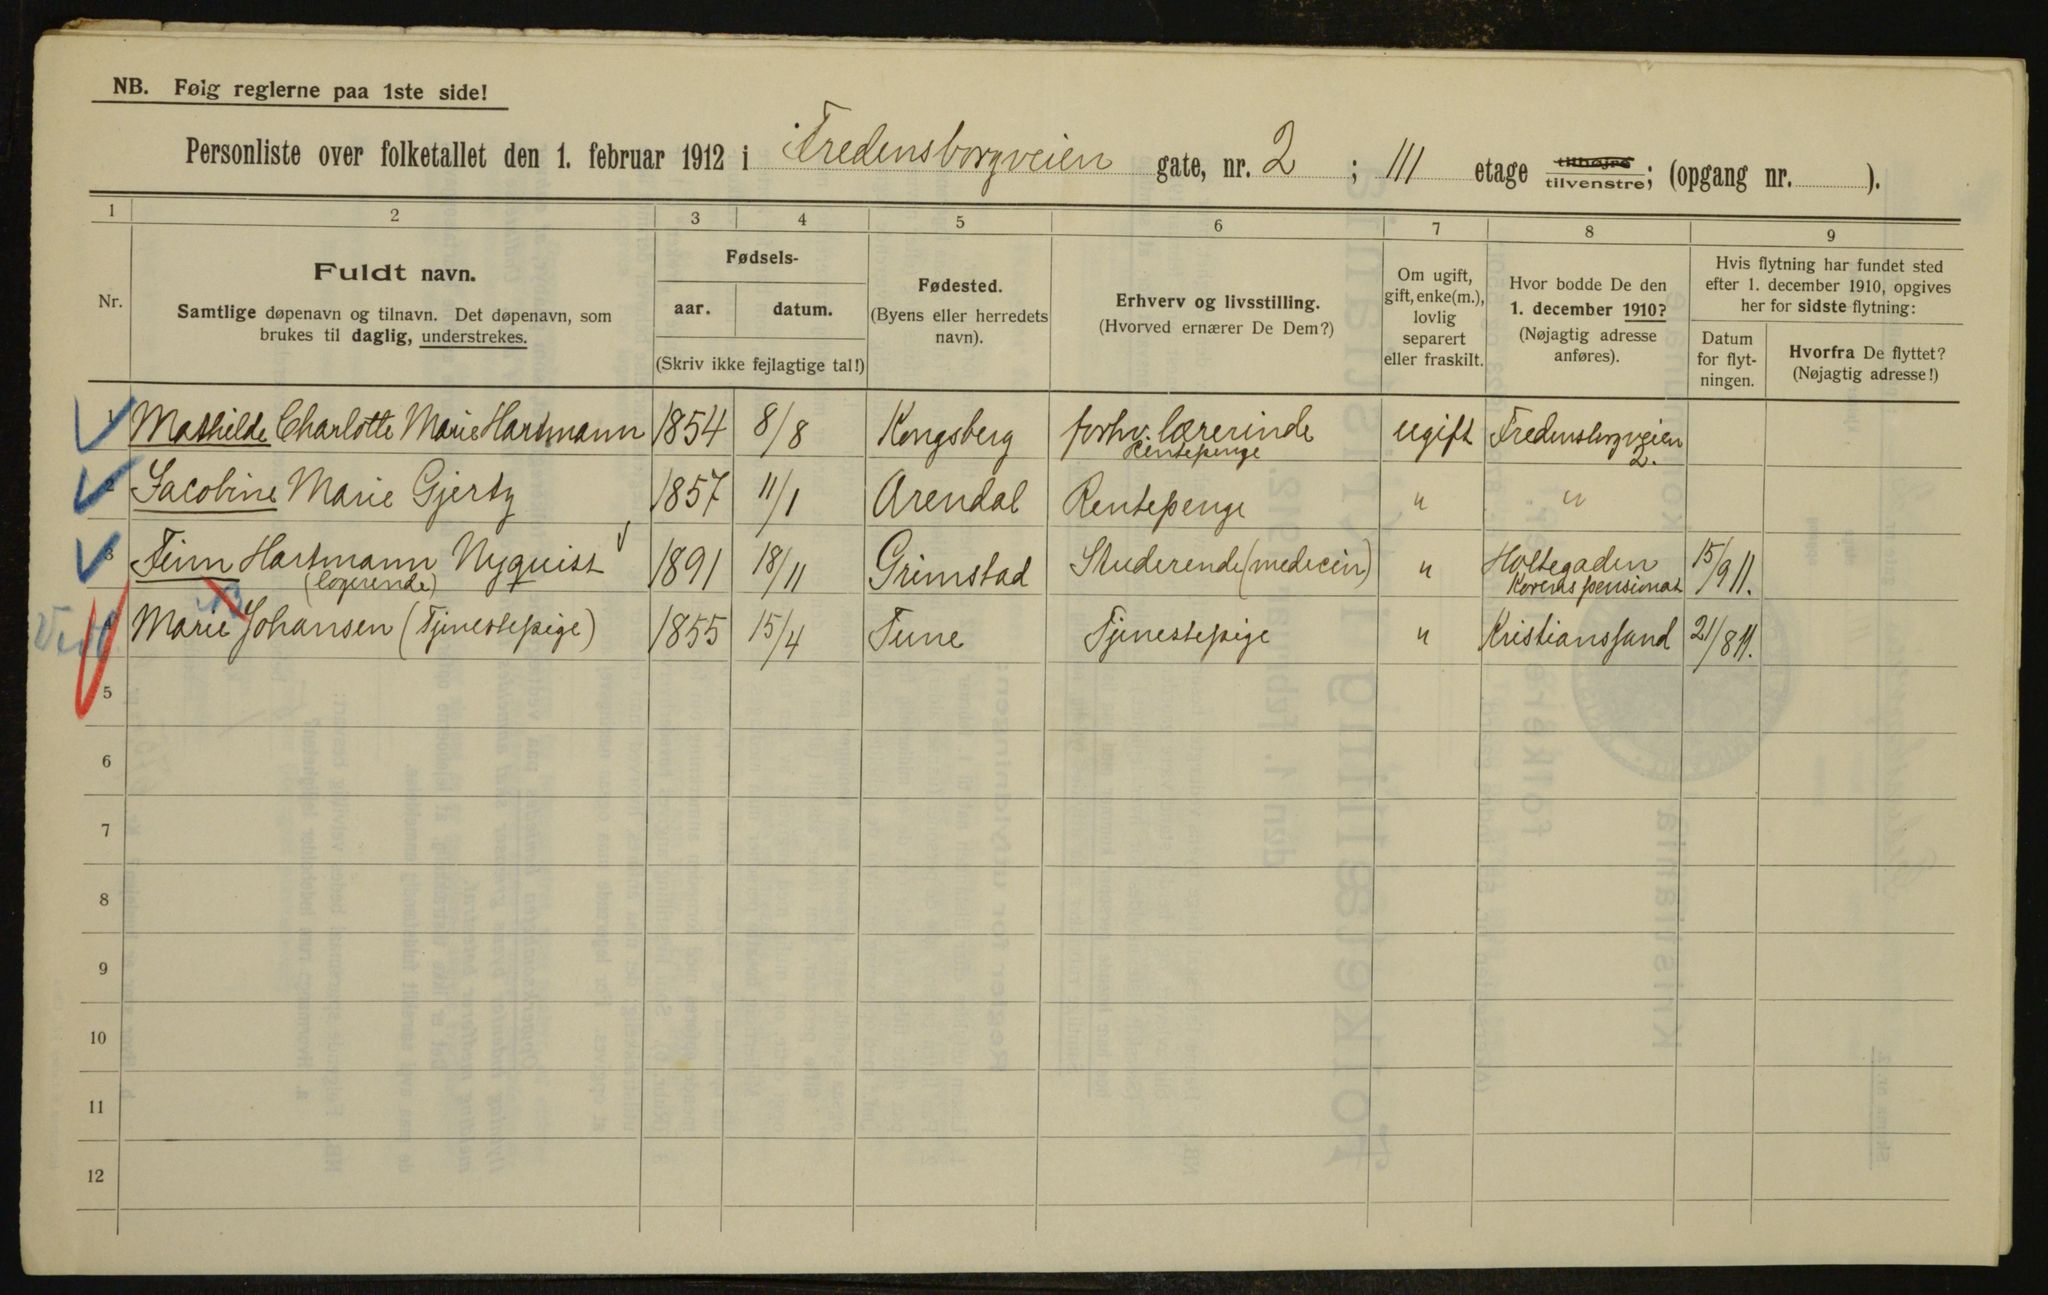 NB. Følg reglerne paa 1ste side!
Personliste over folketallet den 1. februar 1912 i Fredensborgveien gate, nr. 2 ; III etage tilhøjre tilvenstre; (opgang nr. ).
1 2 3 4 5 6 7 8 9
Nr.
Fuldt navn.
Samtlige døpenavn og tilnavn. Det døpenavn, som
brukes til daglig, understrekes.
Fødsels-
aar. datum.
(Skriv ikke fejlagtige tal!)
Fødested.
(Byens eller herredets
navn).
Erhverv og livsstilling.
(Hvorved ernærer De Dem?)
Om ugift,
gift, enke(m.),
lovlig
separert
eller fraskilt.
Hvor bodde De den
1. december 1910?
(Nøjagtig adresse
anføres).
Hvis flytning har fundet sted
efter 1. december 1910, opgives
her for sidste flytning:
Datum
for flyt-
ningen.
Hvorfra De flyttet?
(Nøjagtig adresse!)
1 Mathilde Charlotte Marie Hartmann 1854 8/8 Kongsberg forhv. lærerinde ugift Fredensborgveien
Rentepenge 2.
2 Jacobine Marie Gjertz 1857 11/1 Arendal Rentepenge " "
3 Finn Hartmann Nyquist 1891 18/11 Grimstad Studerende (medecin) " Holtegaden 15/9 11.
(logerende) pensionat
4 Marie Johansen (Tjenestepige) 1855 15/4 Tune Tjenestepige " Kristianssand 21/8 11.
5
6
7
8
9
10
11
12